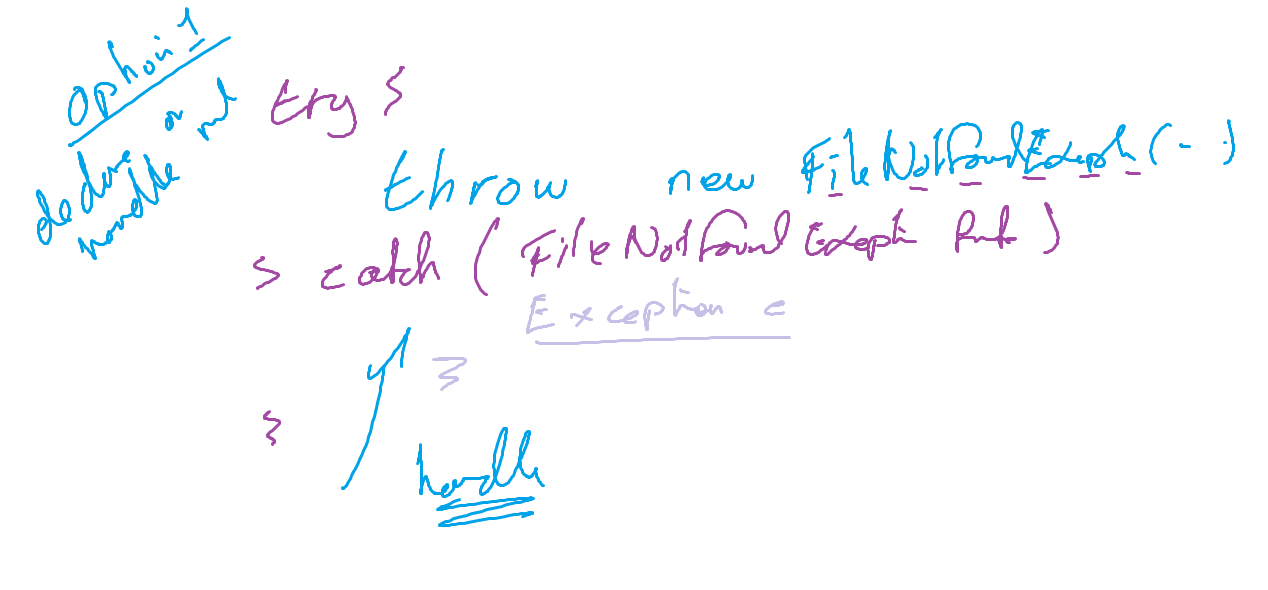 Option 1
declare or
handle rule
try {
throw new FileNotFoundException(- -)
} catch ( FileNotFound Exception )
Exception e
}
}
handle